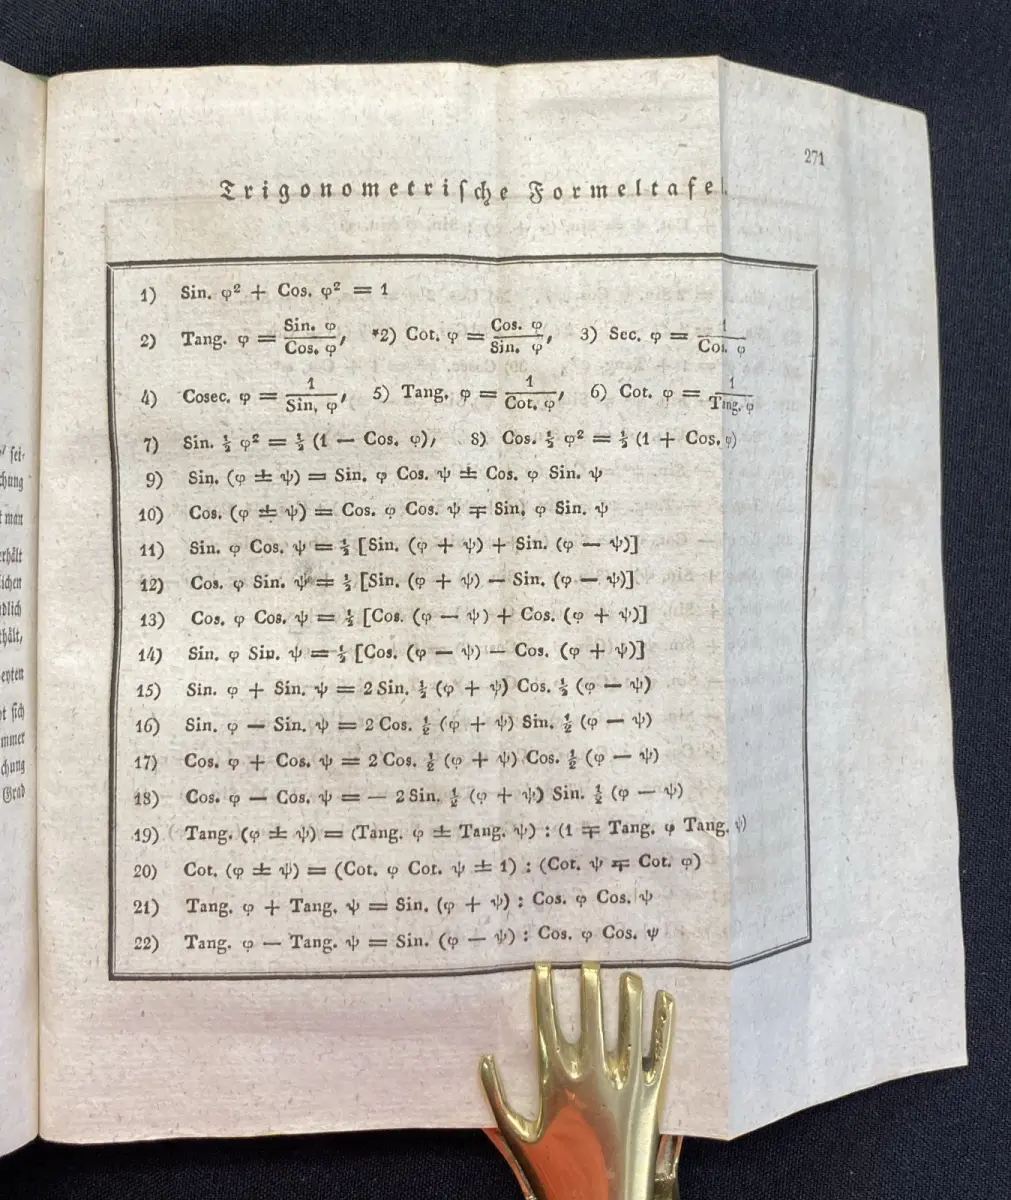 271
Trigonometrische Formeltafel.
1) Sin. φ² + Cos. φ² = 1
2) Tang. φ = Sin. φ / Cos. φ, *2) Cot. φ = Cos. φ / Sin. φ, 3) Sec. φ = 1 / Cos. φ
4) Cosec. φ = 1 / Sin. φ, 5) Tang. φ = 1 / Cot. φ, 6) Cot. φ = 1 / Tang. φ
7) Sin. ½ φ² = ½ (1 — Cos. φ), 8) Cos. ½ φ² = ½ (1 + Cos. φ)
9) Sin. (φ ± ψ) = Sin. φ Cos. ψ ± Cos. φ Sin. ψ
10) Cos. (φ ± ψ) = Cos. φ Cos. ψ ∓ Sin. φ Sin. ψ
11) Sin. φ Cos. ψ = ½ [Sin. (φ + ψ) + Sin. (φ — ψ)]
12) Cos. φ Sin. ψ = ½ [Sin. (φ + ψ) — Sin. (φ — ψ)]
13) Cos. φ Cos. ψ = ½ [Cos. (φ — ψ) + Cos. (φ + ψ)]
14) Sin. φ Sin. ψ = ½ [Cos. (φ — ψ) — Cos. (φ + ψ)]
15) Sin. φ + Sin. ψ = 2 Sin. ½ (φ + ψ) Cos. ½ (φ — ψ)
16) Sin. φ — Sin. ψ = 2 Cos. ½ (φ + ψ) Sin. ½ (φ — ψ)
17) Cos. φ + Cos. ψ = 2 Cos. ½ (φ + ψ) Cos. ½ (φ — ψ)
18) Cos. φ — Cos. ψ = — 2 Sin. ½ (φ + ψ) Sin. ½ (φ — ψ)
19) Tang. (φ ± ψ) = (Tang. φ ± Tang. ψ) : (1 ∓ Tang. φ Tang. ψ)
20) Cot. (φ ± ψ) = (Cot. φ Cot. ψ ± 1) : (Cot. ψ ∓ Cot. φ)
21) Tang. φ + Tang. ψ = Sin. (φ + ψ) : Cos. φ Cos. ψ
22) Tang. φ — Tang. ψ = Sin. (φ — ψ) : Cos. φ Cos. ψ